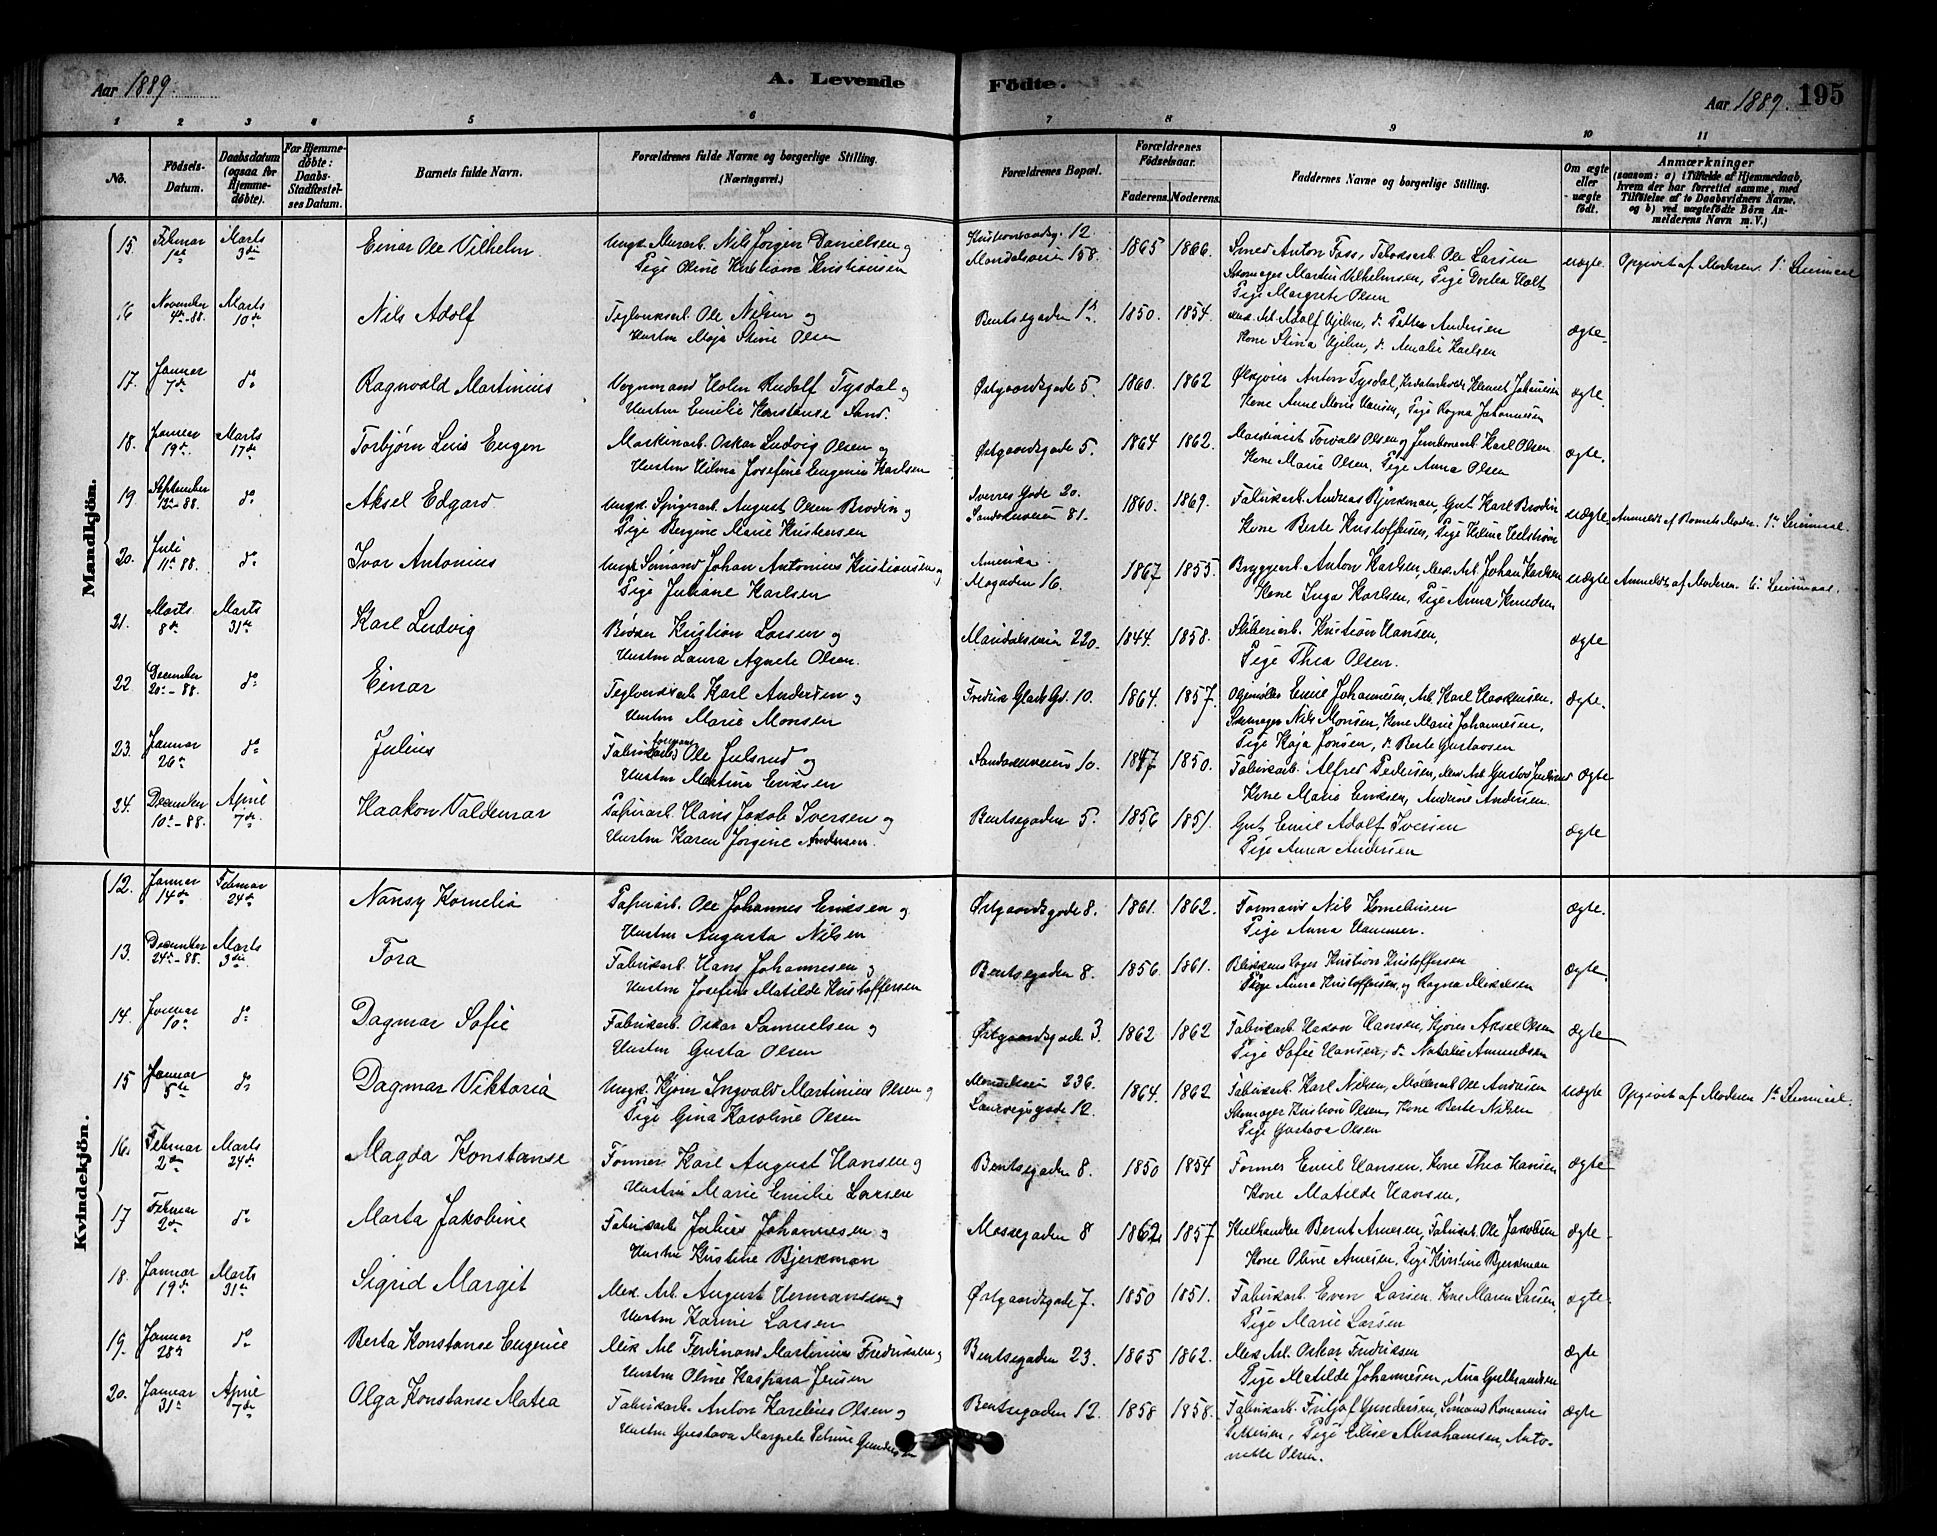 Aar 1889.
A. Levende Födte.
Aar 1889. 195
1 2 3 4 5 6 7 8 9 10 11
No.
Födsels-Datum.
Daabsdatum (ogsaa for Hjemmedöbte).
For Hjemmedöbte: Daabs-Stadfæstelses Datum.
Barnets fulde Navn.
Forældrenes fulde Navne og borgerlige Stilling. (Næringsvei.)
Forældrenes Bopæl.
Forældrenes Födselsaar.
Faderens. Moderens.
Faddernes Navne og borgerlige Stilling.
Om ægte eller uægte födt.
Anmærkninger
(saasom: a) i Tilfælde af Hjemmedaab, hvem der har forrettet samme, med Tilföielse af to Daabsvidners Navne, og b) ved uægtefödte Börn Anmelderens Navn m. V.)
Mandkjön.
15. Februar 1ste Marts 3die Einar Ole Vilhelm
Ungk. Murarb. Nils Jörgen Danielsen og
Pige Oline Kristiane Kristiansen
12. Maridalsveien 158. 1865 1866.
Smed Anton Foss, Fabrikarb. Ole Larsen
Skomager Martin Vilhelmsen, Pige Dortea Holt
Pige Margrete Olsen
uægte. Opgivet af Moderen. 1ste Leiermaal
16 November 4de-88. Marts 10de Nils Adolf
Teglverksarb. Ole Nilsen og
Hustru Maja Stine Olsen
Bentsegaden 1 1850. 1854.
Mek. Arb. Adolf Hjelm, do Petter Andersen
Kone Stina Hjelm, do Amalie Karlsen
ægte.
17. Januar 7de do Ragnvald Martinius
Vognmand Holm Rudolf Tysdal og
Hustru Emilie Konstanse Sand.
Østgaardsgade 5. 1860. 1862
Anton Tysdal, Johansen
Kone Anne Marie Hansen, Pige Ragna Johannesen
ægte.
18. Januar 19de Marts 17de Torbjørn Luis Eugen
Maskinarb. Oskar Ludvig Olsen og
Hustru Hilma Josefine Eugenia Karlsen
Østgaardsgade 5. 1864 1862.
Maskinist Torvald Olsen og Karl Olsen
Kone Marie Olsen, Pige Anna Olsen
ægte.
19 September 12te-88. do Aksel Edgard
Ungk. August Olsen Brodin og
Pige Bergine Marie Kristensen
Sverres Gade 20.
Sandakerveien 81. 1860. 1869.
Fabrikarb. Andreas Bjerkman, Gut Karl Brodin
Kone Berte Kristoffersen, Pige Hilma Helström
uægte. Anmeldt af Barnets Moder. 1ste Leiermaal.
20. Juli 11te 88. do Ivar Antonius
Ungk. Sømand Johan Antonius Kristiansen og
Pige Juliane Karlsen
Amerika.
Møgaden 16. 1867 1855.
Bryggearb. Anton Karlsen, Mek. Arb. Johan Karlsen
Kone Inga Karlsen, Pige Anna Knudsen
uægte Anmeldt af Moderen. Leiermaal.
21. Marts. 8de Marts 31te Karl Ludvig
Bødker Kristian Larsen og
Hustru Laura Agnete Olsen.
Maridalsveien 220. 1844. 1858.
Sliberiarb. Kristian Hansen,
Pige Thea Olsen.
ægte
22 December 20de-88. do Einar
Teglverksarb. Karl Andersen og
Hustru Marie Monsen
Fredrik Glads Gd. 10. 1864. 1857.
Emil Johannesen, Arb. Karl Haakensen.
Skomager Nils Monsen, Kone Marie Johannesen,
Pige Kaja Jonsen, do Berte Gustavsen
ægte.
23. Januar 26de do Julius
Fabrikarb. Ole Julsrud og
Hustru Martine Eriksen
Sandakerveien 10. 1847 1850.
Fabrikarb. Alfred Pedersen, Mek. Arb. Gustav
Kone Marie Eriksen, Andrine Andersen.
ægte
24. December 10de-88. April 7de. Haakon Valdemar
Papirarb. Hans Jakob Iversen og
Hustru Karen Jörgine Andersen.
Bentsegaden 5. 1856 1851.
Gut Emil Adolf Iversen
Pige Anna Andersen
ægte
Kvindekjön.
12. Januar 14de Februar 24de Nansy Kornelia
Papirarb. Ole Johannes Eriksen og
Hustru Augusta Nilsen
Østgaardsgade 8. 1861. 1862.
Formand Nils Kornelinsen
Pige Anna Hammer.
ægte.
13. December 24de-88. Marts 3die. Tora
Fabrikarb. Hans Johannesen og
Hustru Josefine Matilde Kristoffersen
Bentsegaden 8. 1856. 1861.
Blikkenslager Kristian Kristoffersen
Pige Anna Kristoffersen, og Ragna Mikelsen
ægte.
14. Januar 10de do Dagmar Sofie
Fabrikarb. Oskar Samuelsen og
Hustru Gusta Olsen
Østgaardsgade 3. 1862 1862
Fabrikarb. Hakon Hansen, Kjører Aksel Olsen
Pige Sofie Hansen, do Natalie Amundsen
ægte
15 Januar 5te do Dagmar Viktoria
Ungk. Kjører Ingvald Martinius Olsen og
Pige Gina Karoline Olsen
236.
Laurvigsgade 12. 1864. 1862
Fabrikarb. Karl Nilsen, Møllerarb. Ole Andresen
Skomager Kristian Olsen, Kone Berte Nilsen
Pige Gustava Olsen
uægte Opgivet af Moderen 1ste Leiermaal.
16. Februar 2den Marts 24de Magda Konstanse
Former Karl August Hansen og
Hustru Marie Emilie Larsen
Bentsegaden 8. 1850 1854
Former Emil Hansen. Kone Thea Hansen
Kone Matilde Hansen.
ægte
17 Februar 2den do Marta Jakobine
Fabrikarb. Julius Johannesen og
Hustru Kristine Bjerkman
Mossegaden 8 1862 1857
Bernt Arnesen, Fabrikarb. Ole Jakobsen
Kone Oline Arnesen, Pige Kristine Bjerkman
ægte.
18. Januar 19de Marts 31te Sigrid Margit
Mek. Arb. August Hermansen og
Hustru Karine Larsen
Østgaardsgade 7. 1850 1851.
Fabrikarb. Even Larsen. Kone Maren Larsen,
Pige Marie Larsen
ægte.
19. Januar 28de do Berta Konstanse Eugenie
Mek. Arb. Ferdinand Martinius Fredriksen og
Hustru Oline Kaspara Jensen
Bentsegaden 23. 1865 1862.
Mek. Arb. Oskar Fredriksen
Pige Matilde Johannesen, Ana Gulbrandsen
ægte
20. Januar 31te April 7de Olga Konstanse Matea
Fabrikarb. Anton Karelius Olsen og
Hustru Gustava Margrete Petrine Gundersen
Bentsegaden 12. 1858 1858.
Fabrikarb. Fritjof Gundersen, Sömand Romanus
Pettersen, Pige Elise Abrahamsen, Anto-
nette Olsen.
ægte